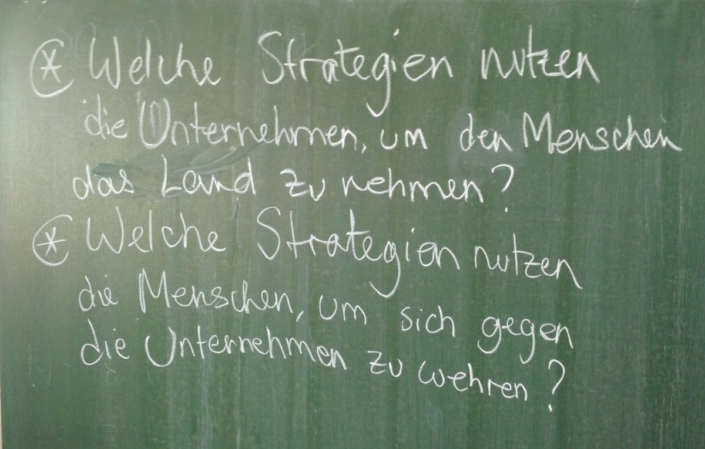 * Welche Strategien nutzen
die Unternehmen, um den Menschen
das Land zu nehmen?
* Welche Strategien nutzen
die Menschen, um sich gegen
die Unternehmen zu wehren?